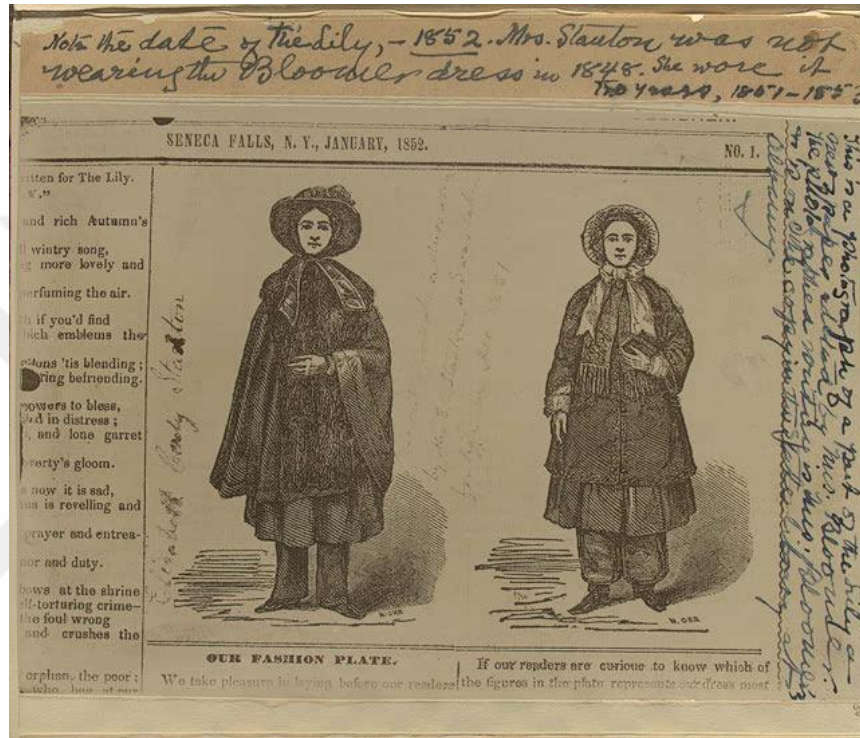 Note the date of the Lily, - 1852. Mrs. Stanton was not
wearing the Bloomer dress in 1848. She wore it
two years, 1851-1853
SENECA FALLS, N. Y., JANUARY, 1852.
NO. 1.
itten for The Lily.
and rich Autumn's
wintry song,
more lovely and
erfuming the air.
if you'd find
ich emblems the
'tis blending;
ring befriending.
owers to bless,
d in distress;
, and lone garret
verty's gloom.
now it is sad,
us is revelling and
prayer and entrea-
or and duty.
bows at the shrine
lf-torturing crime—
the foul wrong
and crushes the
orphan, the poor;
who has
Elizabeth Cady Stanton
N. ORR
N. ORR
OUR FASHION PLATE.
We take pleasure in laying before our readers
If our readers are curious to know which of
the figures in the plate represents our dress most
This is a photograph of a part of the Lily a
newspaper edited by Mrs. Bloomer.
The writing is Mrs. Bloomer's
in the copy in the State Library at
Albany.